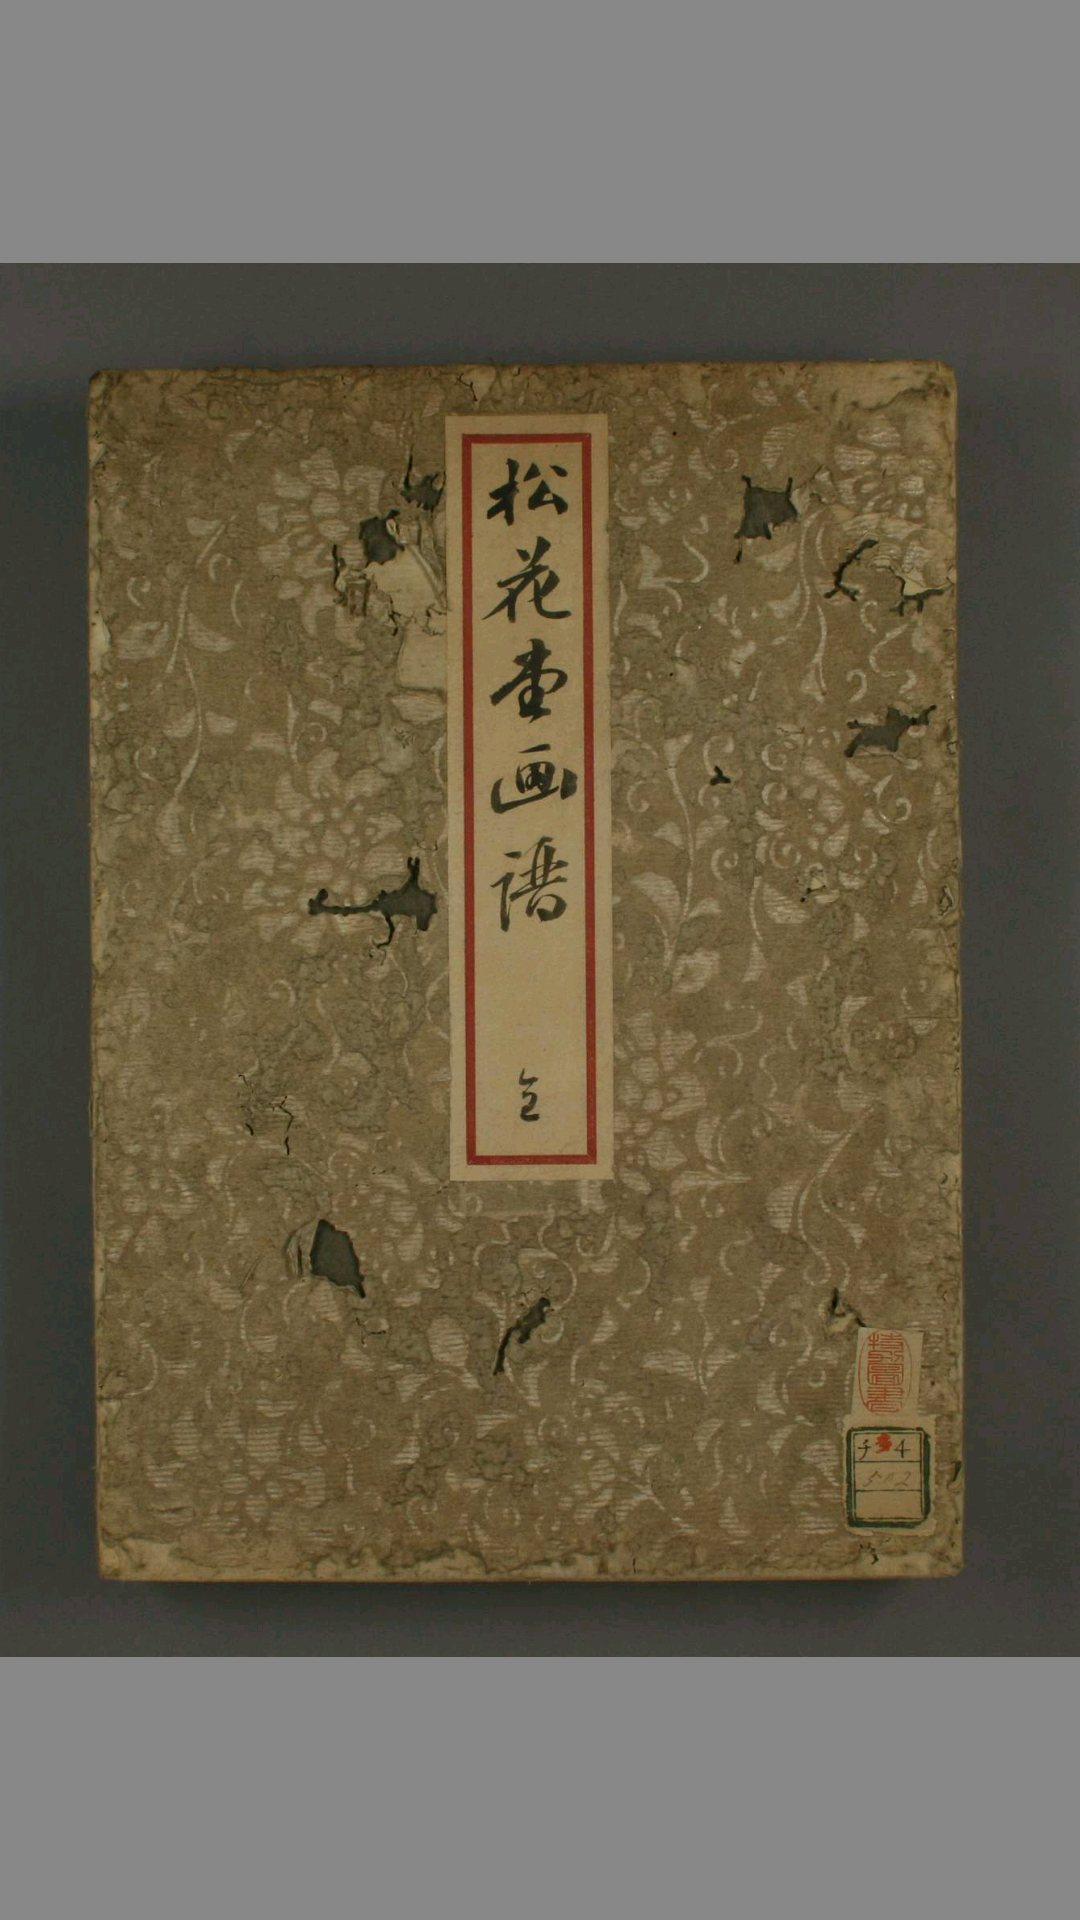 松花堂画譜 全
チ 4
502